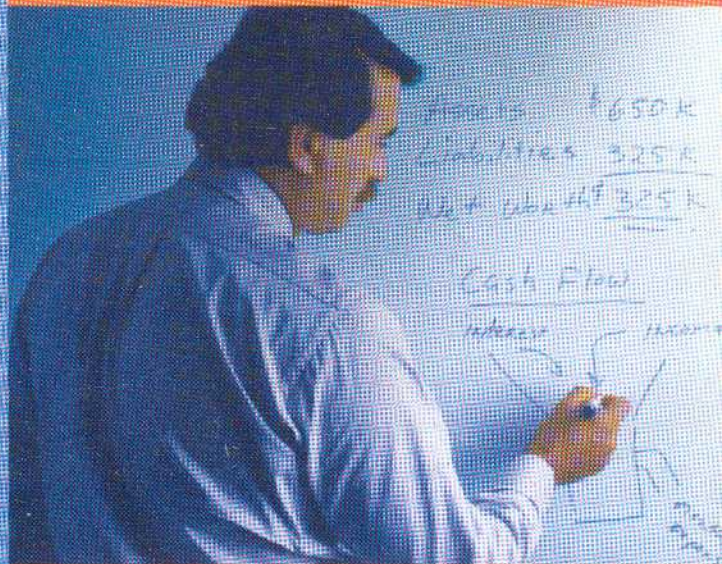 Assets $650 K
Liabilities 325 K
Net Worth $325 K
Cash Flow
interest income